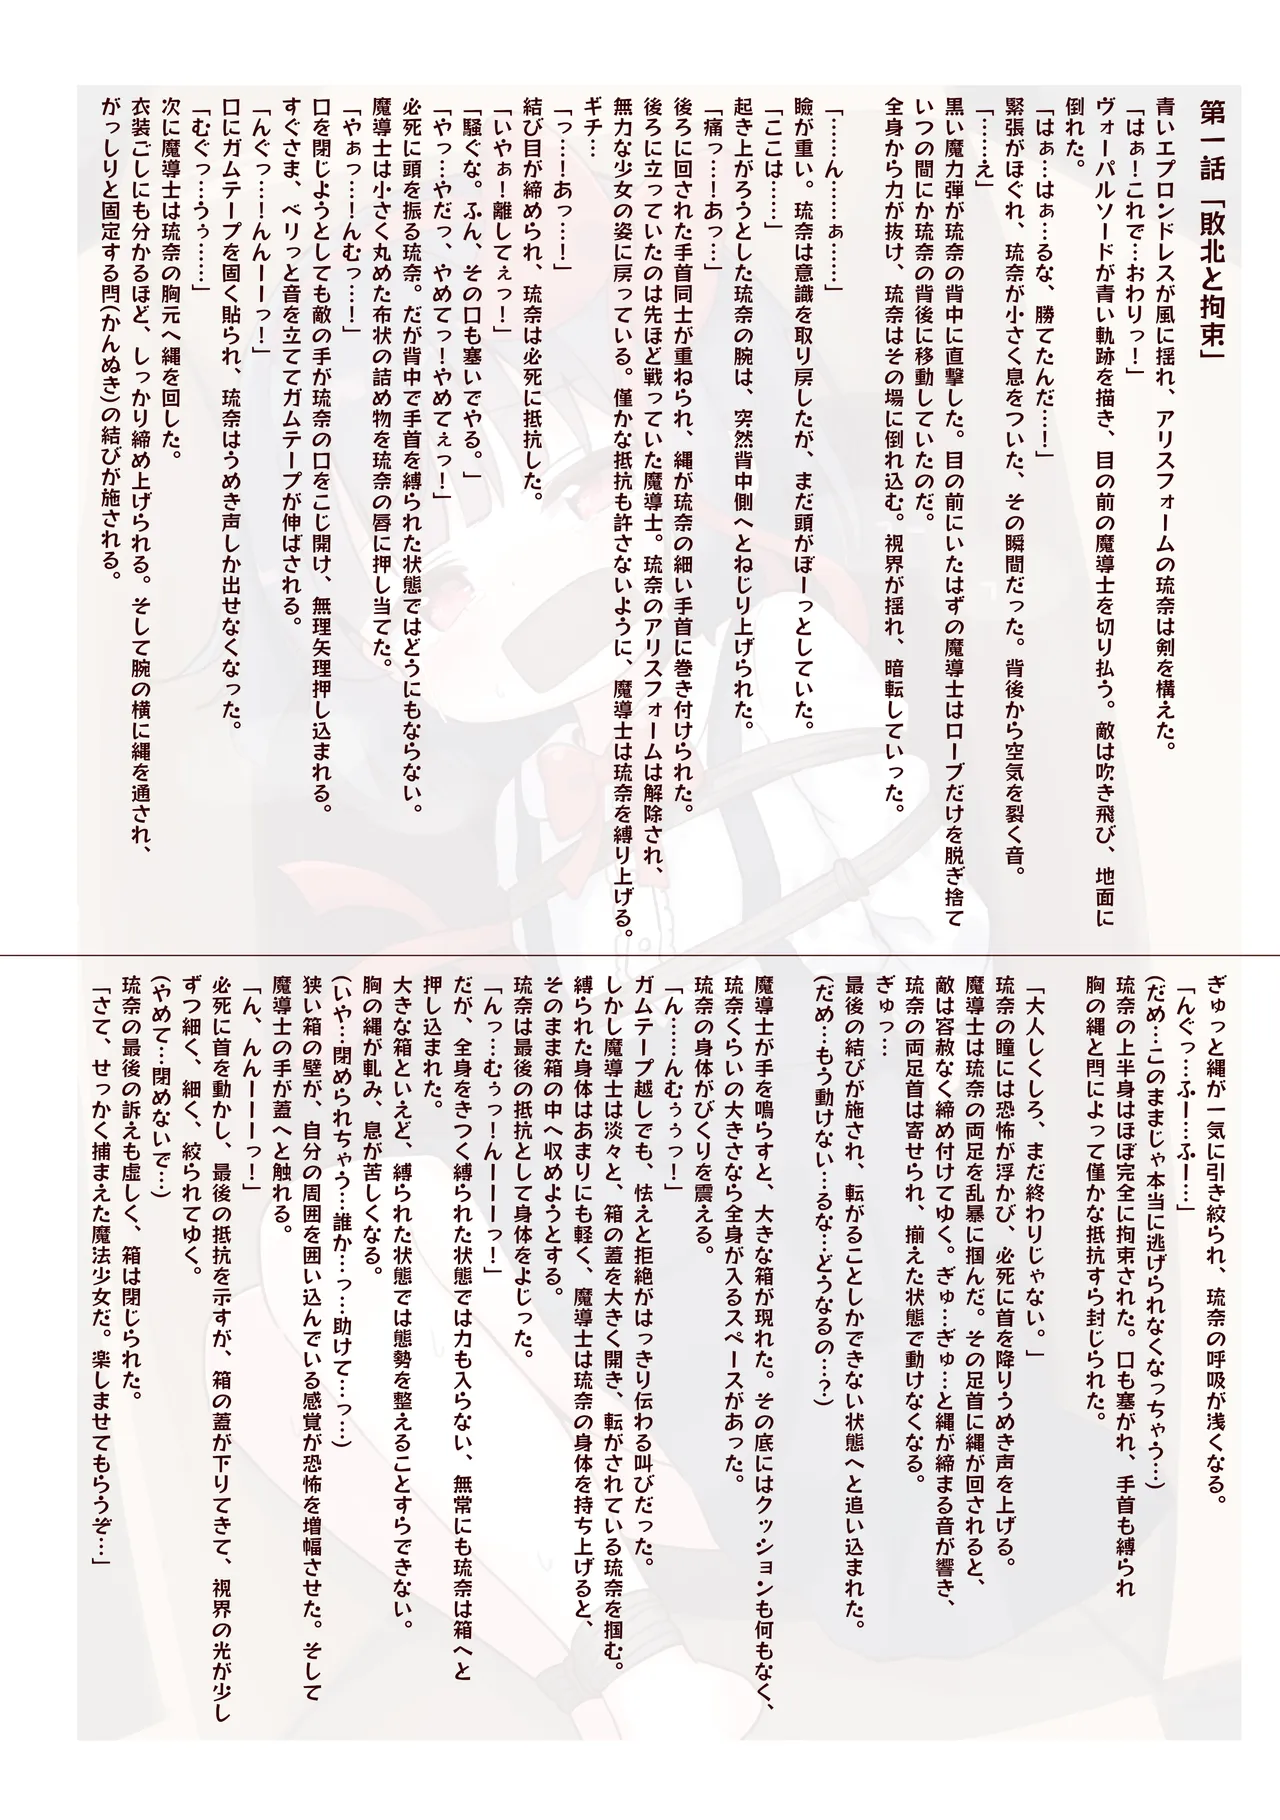 第一話「敗北と拘束」
青いエプロンドレスが風に揺れ、アリスフォームの琉奈は剣を構えた。
「はぁ!これで…おわりっ!」
ヴォーパルソードが青い軌跡を描き、目の前の魔導士を切り払う。敵は吹き飛び、地面に
倒れた。
「はぁ…はぁ…るな、勝てたんだ…!」
緊張がほぐれ、琉奈が小さく息をついた、その瞬間だった。背後から空気を裂く音。
「……え」
黒い魔力弾が琉奈の背中に直撃した。目の前にいたはずの魔導士はローブだけを脱ぎ捨て
いつの間にか琉奈の背後に移動していたのだ。
全身から力が抜け、琉奈はその場に倒れ込む。視界が揺れ、暗転していった。
「……ん……ぁ……」
瞼が重い。琉奈は意識を取り戻したが、まだ頭がぼーっとしていた。
「ここは……」
起き上がろうとした琉奈の腕は、突然背中側へとねじり上げられた。
「痛っ…!あっ…」
後ろに回された手首同士が重ねられ、縄が琉奈の細い手首に巻き付けられた。
後ろに立っていたのは先ほど戦っていた魔導士。琉奈のアリスフォームは解除され、
無力な少女の姿に戻っている。僅かな抵抗も許さないように、魔導士は琉奈を縛り上げる。
ギチ…
「っ…!あっ…!」
結び目が締められ、琉奈は必死に抵抗した。
「いやぁ!離してぇっ!」
「騒ぐな。ふん、その口も塞いでやる。」
「やっ…やだっ、やめてっ!やめてぇっ!」
必死に頭を振る琉奈。だが背中で手首を縛られた状態ではどうにもならない。
魔導士は小さく丸めた布状の詰め物を琉奈の唇に押し当てた。
「やぁっ…!んむっ…!」
口を閉じようとしても敵の手が琉奈の口をこじ開け、無理矢理押し込まれる。
すぐさま、ベリっと音を立ててガムテープが伸ばされる。
「んぐっ…!んんーーっ!」
口にガムテープを固く貼られ、琉奈はうめき声しか出せなくなった。
「むぐっ…うぅ……」
次に魔導士は琉奈の胸元へ縄を回した。
衣装ごしにも分かるほど、しっかり締め上げられる。そして腕の横に縄を通され、
がっしりと固定する閂(かんぬき)の結びが施される。
ぎゅっと縄が一気に引き絞られ、琉奈の呼吸が浅くなる。
「んぐっ…ふー…ふー…」
(だめ…このままじゃ本当に逃げられなくなっちゃう…)
琉奈の上半身はほぼ完全に拘束された。口も塞がれ、手首も縛られ
胸の縄と閂によって僅かな抵抗すら封じられた。
「大人しくしろ、まだ終わりじゃない。」
琉奈の瞳には恐怖が浮かび、必死に首を降りうめき声を上げる。
魔導士は琉奈の両足を乱暴に掴んだ。その足首に縄が回されると、
敵は容赦なく締め付けてゆく。ぎゅ…ぎゅ…と縄が締まる音が響き、
琉奈の両足首は寄せられ、揃えた状態で動けなくなる。
ぎゅっ…
最後の結びが施され、転がることしかできない状態へと追い込まれた。
(だめ…もう動けない…るな…どうなるの…?)
魔導士が手を鳴らすと、大きな箱が現れた。その底にはクッションも何もなく、
琉奈くらいの大きさなら全身が入るスペースがあった。
琉奈の身体がびくりを震える。
「ん……んむぅぅっ!」
ガムテープ越しでも、怯えと拒絶がはっきり伝わる叫びだった。
しかし魔導士は淡々と、箱の蓋を大きく開き、転がされている琉奈を掴む。
縛られた身体はあまりにも軽く、魔導士は琉奈の身体を持ち上げると、
そのまま箱の中へ収めようとする。
琉奈は最後の抵抗として身体をよじった。
「んっ…むぅっ!んーーーっ!」
だが、全身をきつく縛られた状態では力も入らない、無常にも琉奈は箱へと
押し込まれた。
大きな箱といえど、縛られた状態では態勢を整えることすらできない。
胸の縄が軋み、息が苦しくなる。
(いや…閉められちゃう…誰か…っ…助けて…っ…)
狭い箱の壁が、自分の周囲を囲い込んでいる感覚が恐怖を増幅させた。そして
魔導士の手が蓋へと触れる。
「ん、んんーーーっ!」
必死に首を動かし、最後の抵抗を示すが、箱の蓋が下りてきて、視界の光が少し
ずつ細く、細く、絞られてゆく。
(やめて…閉めないで…)
琉奈の最後の訴えも虚しく、箱は閉じられた。
「さて、せっかく捕まえた魔法少女だ。楽しませてもらうぞ…」